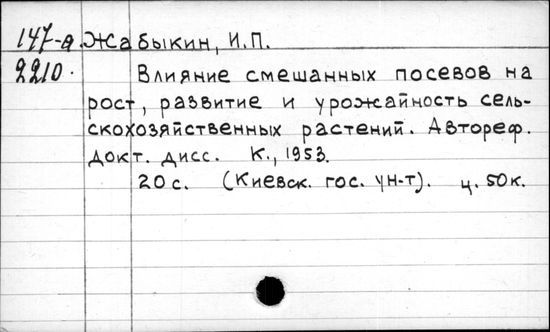 147-а Жабыкин, И.П.
2210.
Влияние смешанных посевов на
рост, развитие и урожайность сель-
скохозяйственных растений. Автореф.
докт. дисс. К., 1953.
20 с. (Киевск. гос. ун-т). ц. 50 к.